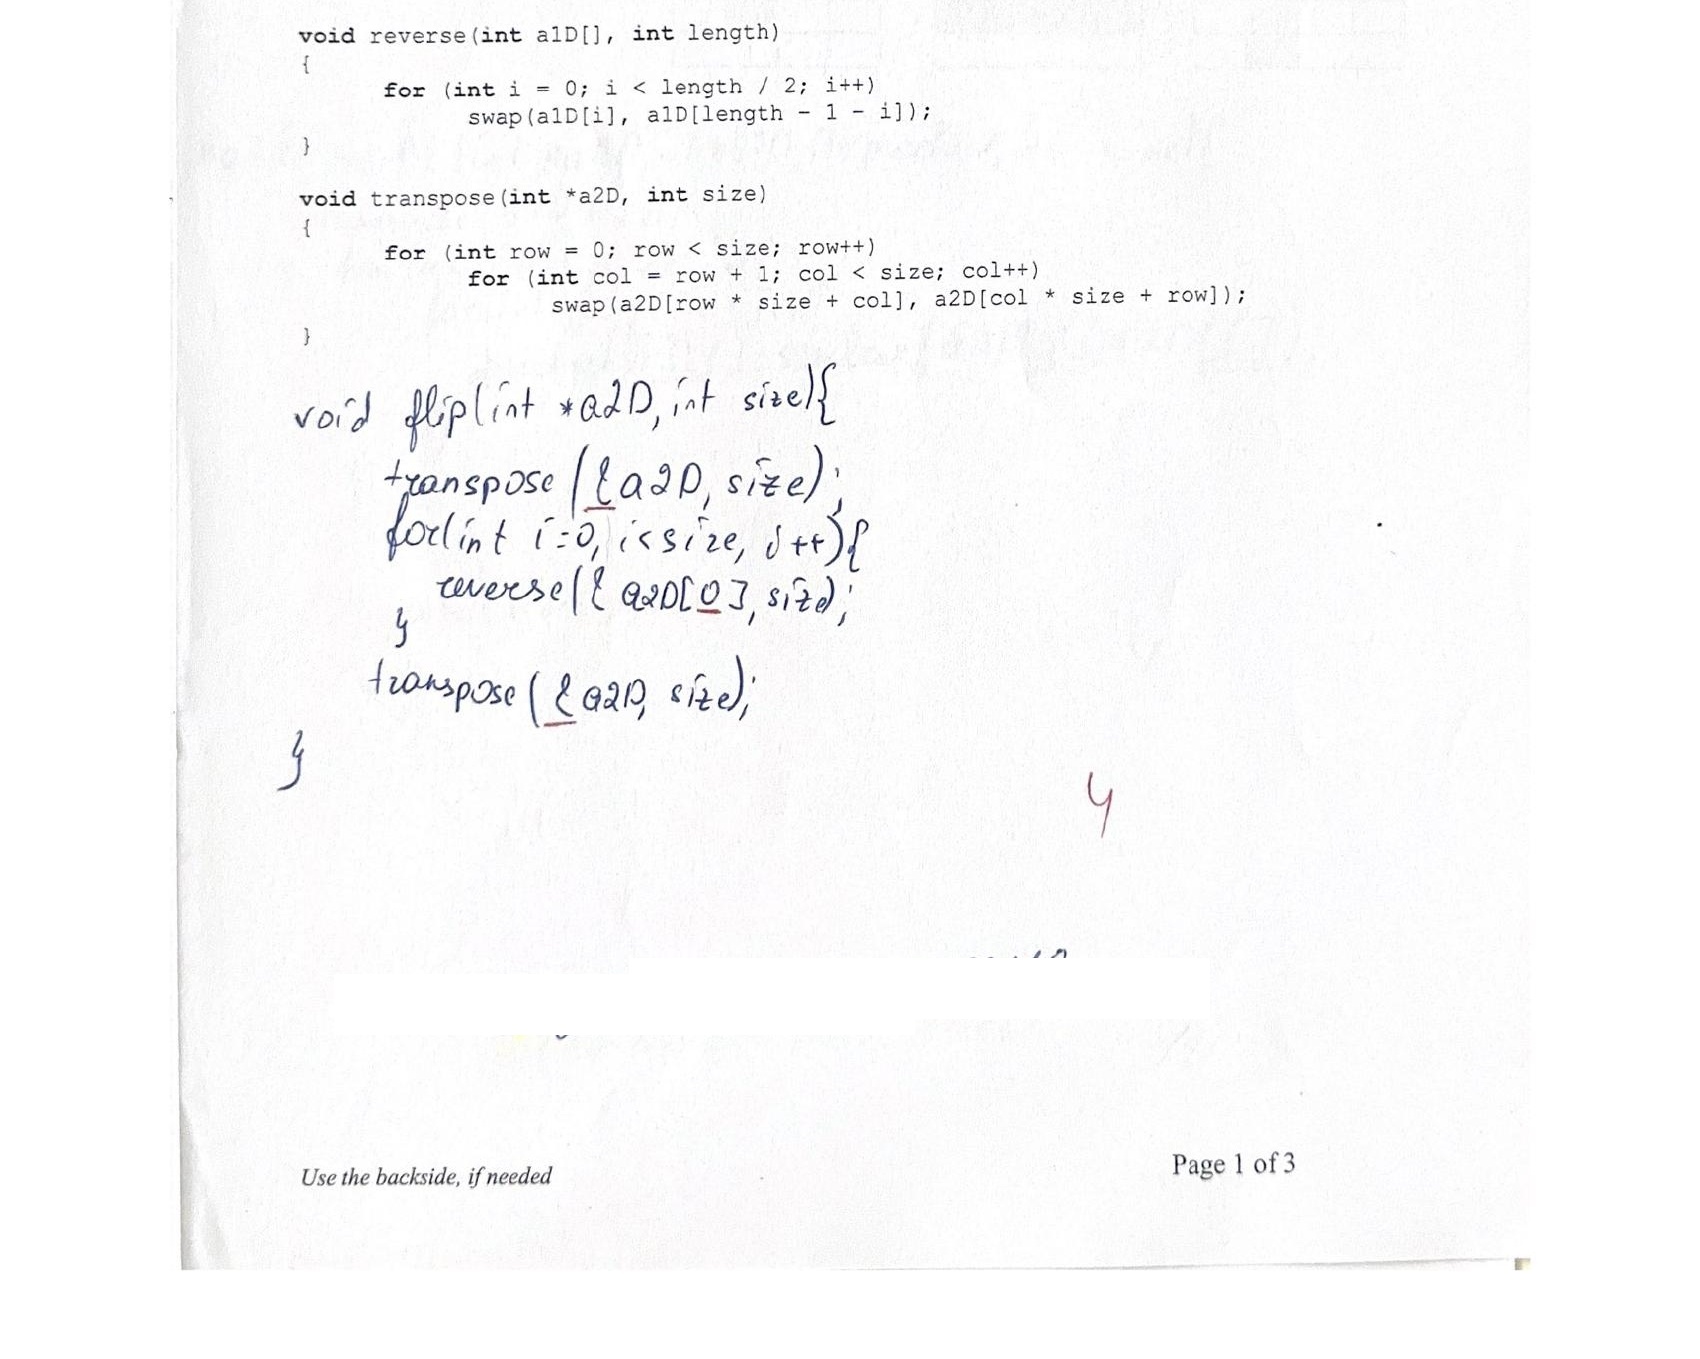 void reverse(int a1D[], int length)
{
for (int i = 0; i < length / 2; i++)
swap(a1D[i], a1D[length - 1 - i]);
}
void transpose(int *a2D, int size)
{
for (int row = 0; row < size; row++)
for (int col = row + 1; col < size; col++)
swap(a2D[row * size + col], a2D[col * size + row]);
}
void flip(int *a2D, int size){
transpose(&a2D, size);
for(int i=0, i<size, i++){
reverse(&a2D[0], size);
}
transpose(&a2D, size);
}
4
Use the backside, if needed
Page 1 of 3